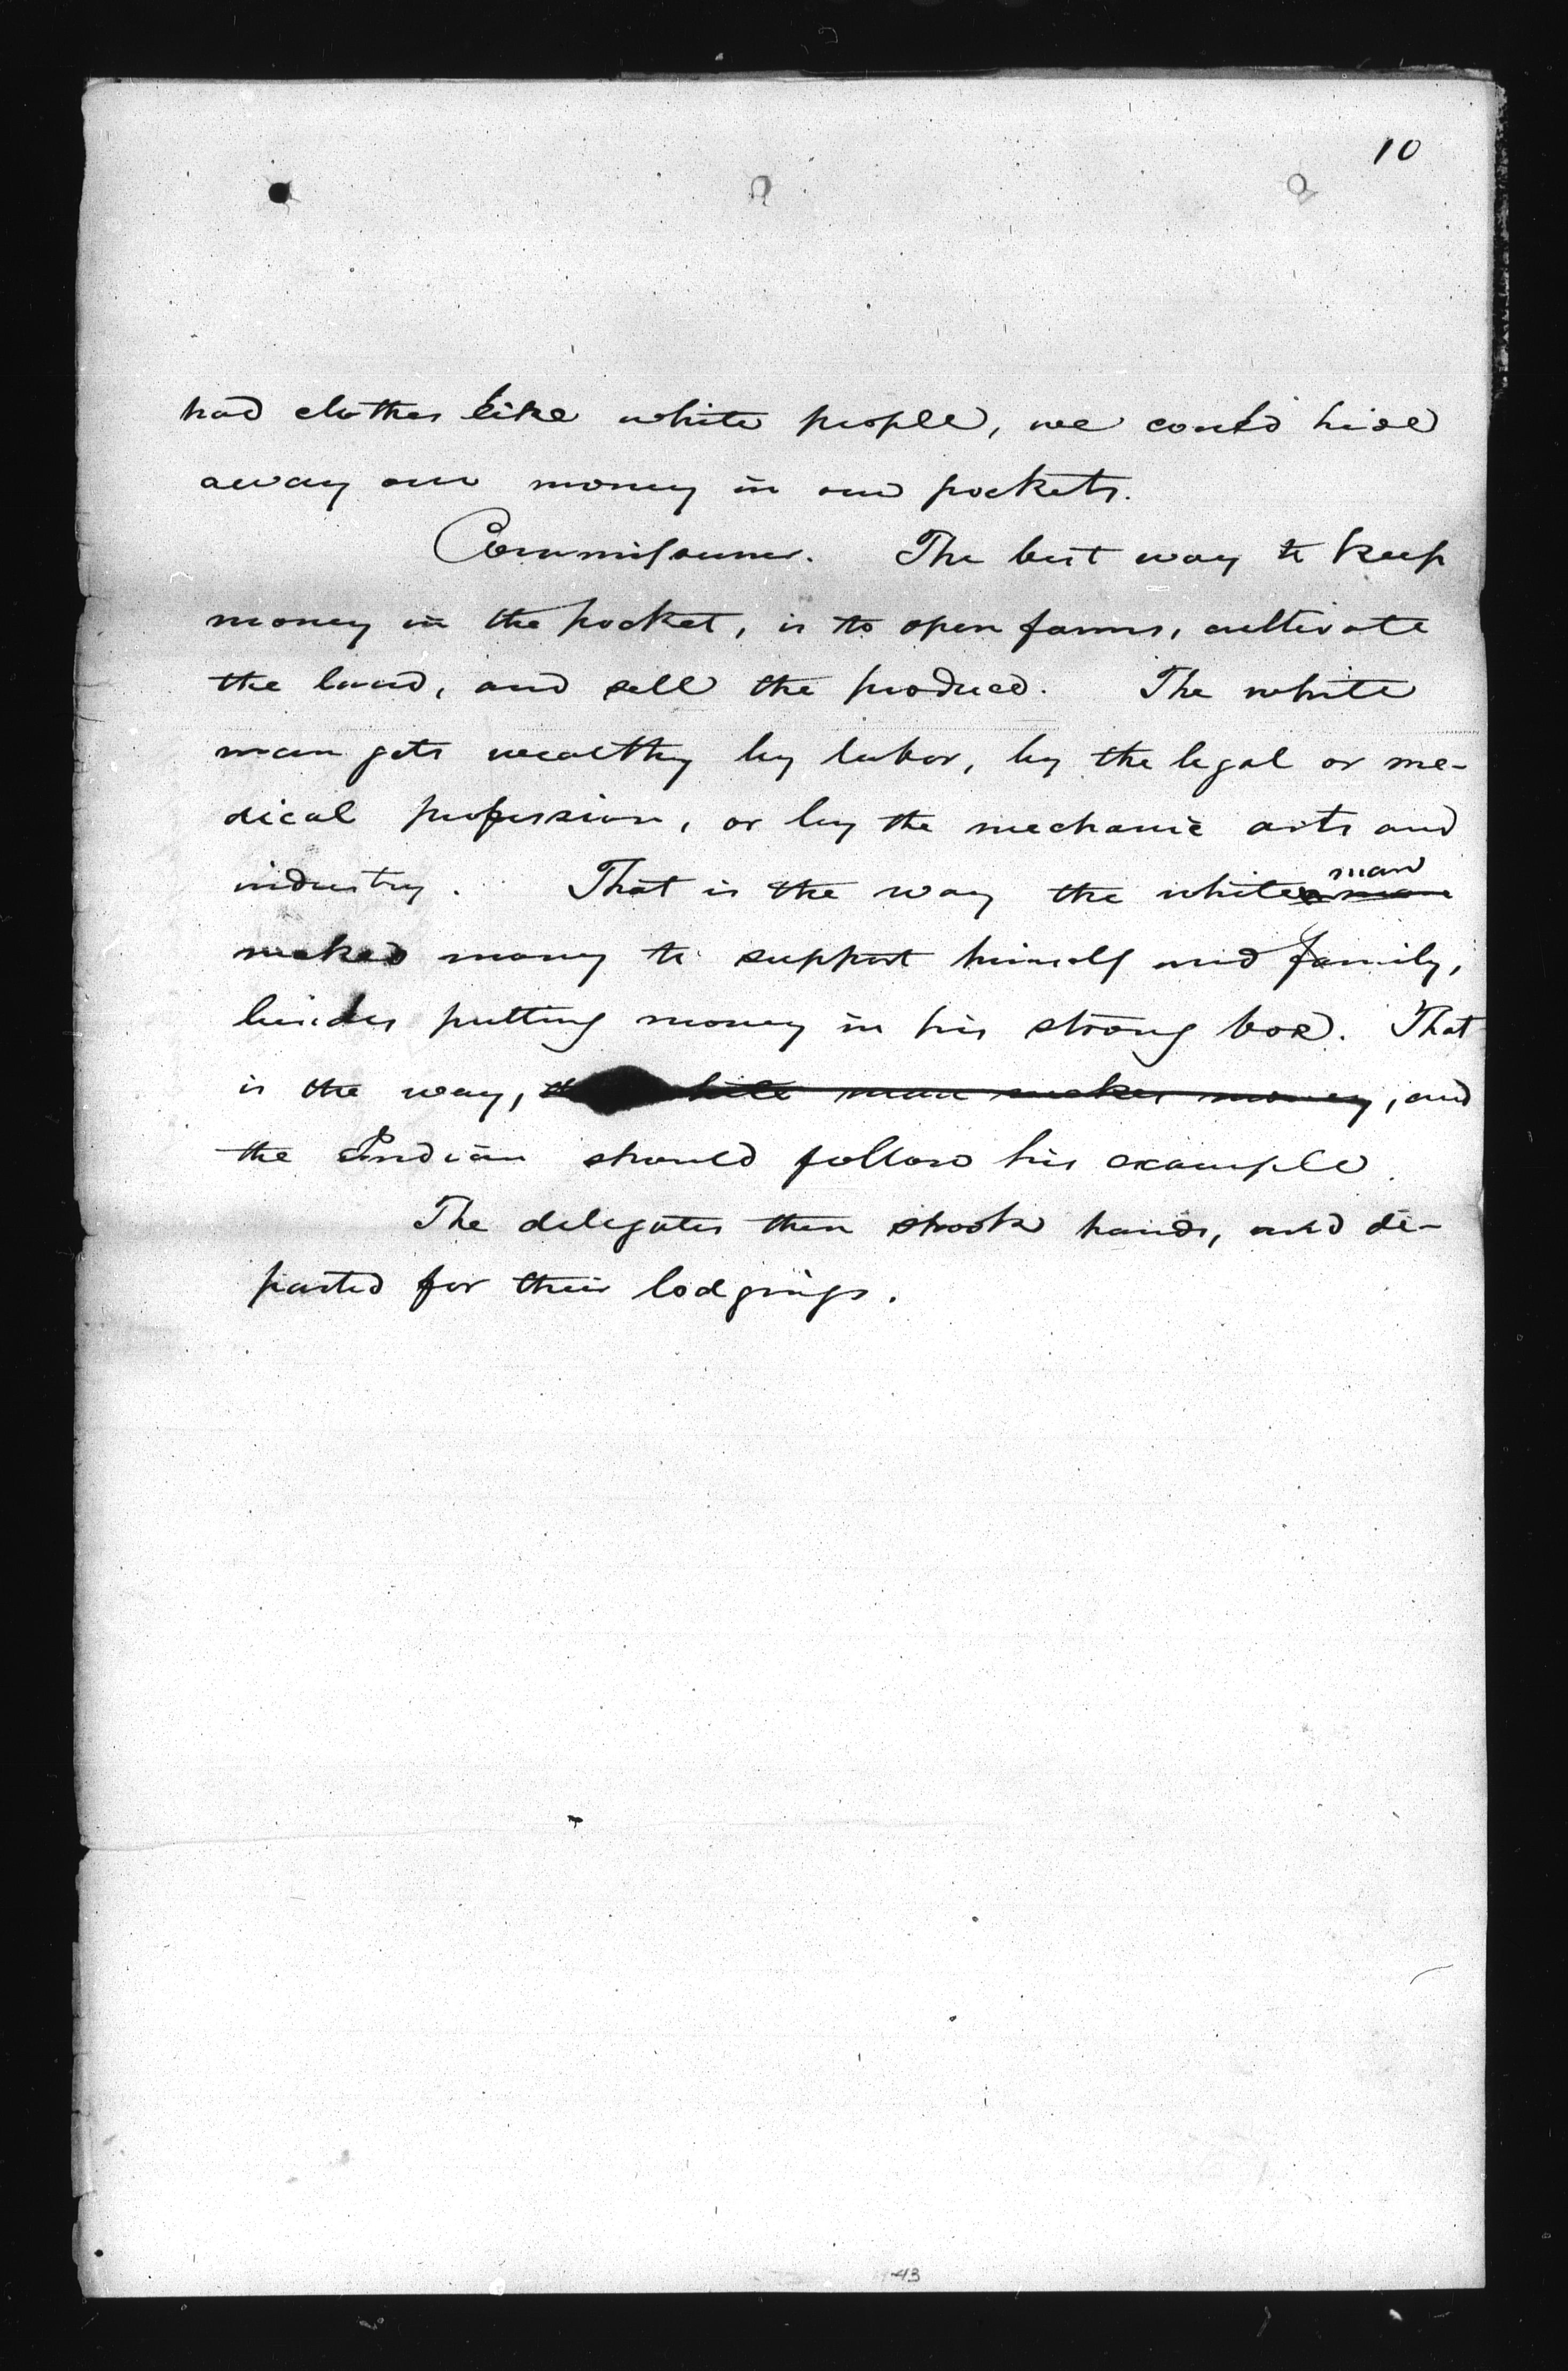 10
had clothes like white people, we could hide
away our money in our pockets.
Commissioner. The best way to keep
money in the pocket, is to open farms, cultivate
the land, and sell the produce. The white
man gets wealthy by labor, by the legal or me-
dical profession, or by the mechanic arts and
industry. That is the way the white man
makes money to support himself and family,
besides putting money in his strong box. That
is the way, the white man makes money, and
the Indian should follow his example.
The delegates then shook hands, and de-
parted for their lodgings.
43